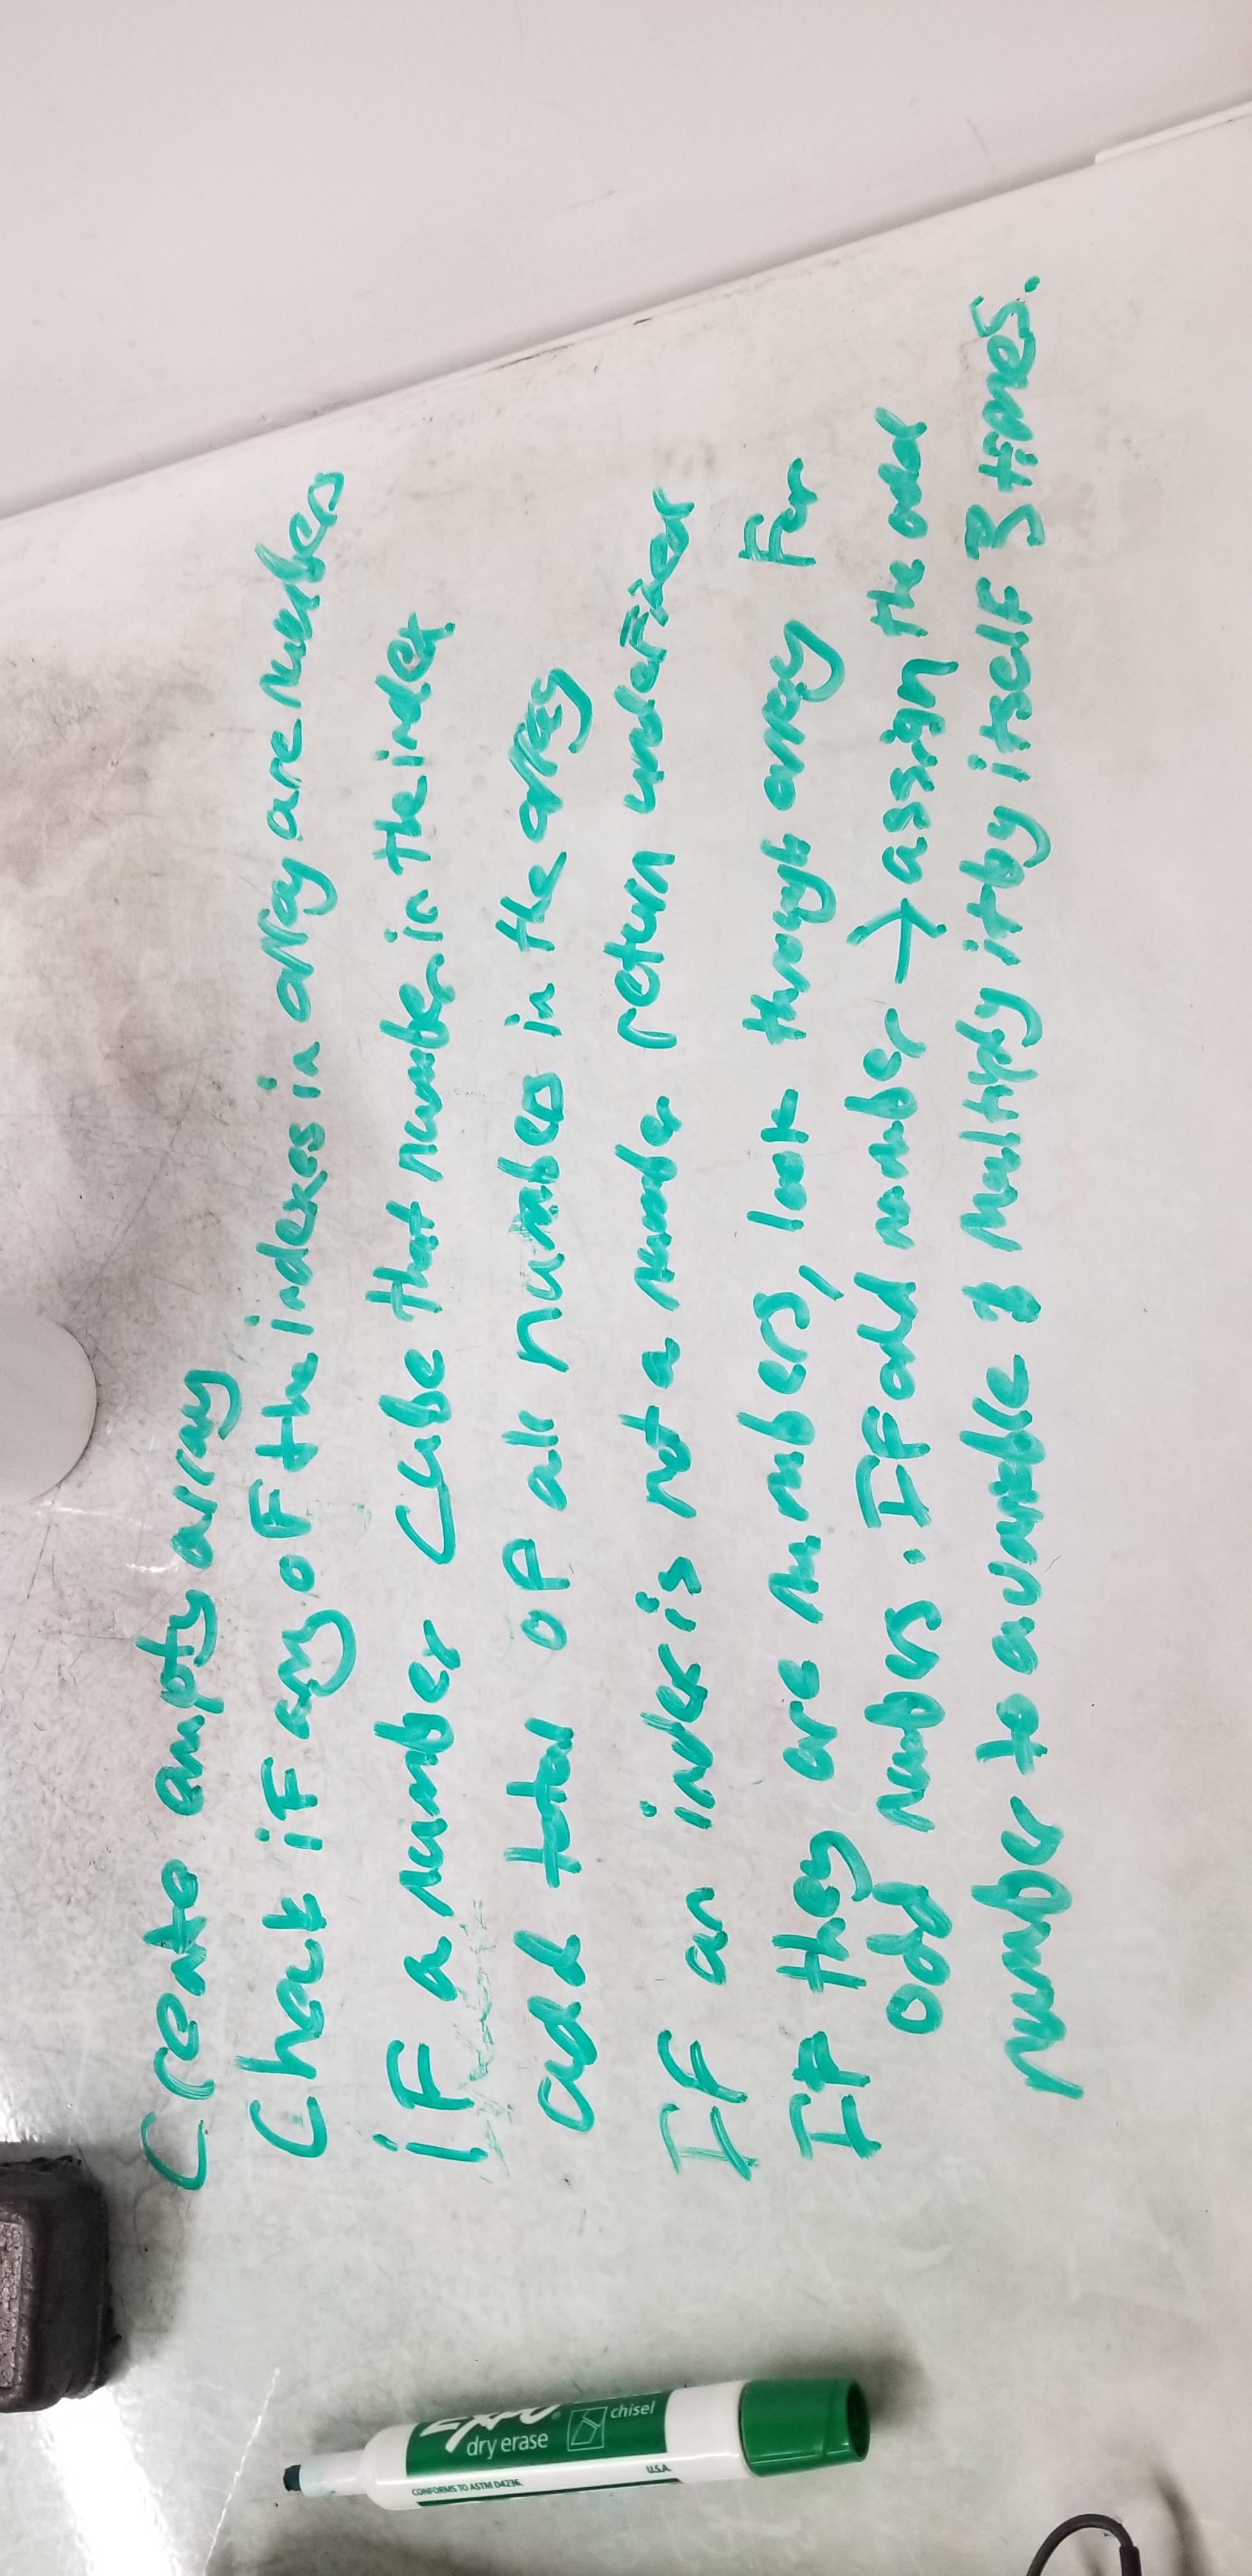 Create empty array
Check if any of the indexes in array are numbers
if a number cube that number in the index.
add total of all numbers in the array
If an index is not a number return undefined
If they are numbers, look through array for
odd numbers. If odd number → assign the odd
number to a variable & multiply it by itself 3 times.
EXPO®
dry erase
chisel
CONFORMS TO ASTM D4236
U.S.A.